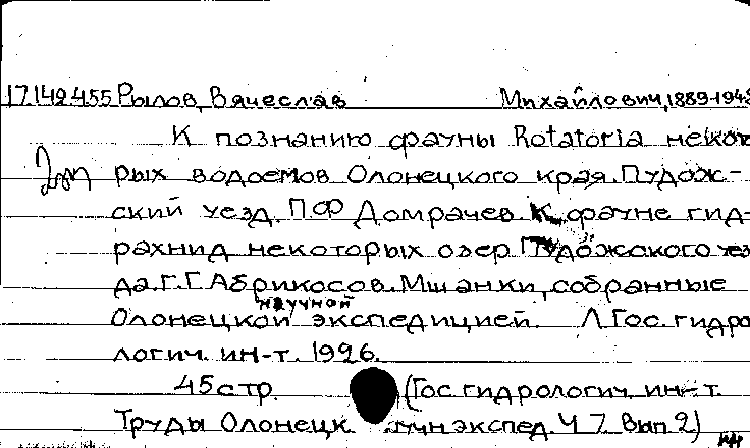 17.142.455 Рылов, Вячеслав Михайлович, 1889-1943
К познанию фауны Rotatoria некото-
рых водоемов Олонецкого края. Пудож-
ский уезд. П.Ф Домрачев. К фауне гид-
рахнид некоторых озер Пудожского уез
да. Г.Г Абрикосов. Мшанки, собранные
научной
Олонецкой экспедицией. Л. Гос. гидро
логич. ин-т. 1926.
45 стр. (Гос. гидрологич. ин-т.
Труды Олонецк. научн экспед. Ч 7. Вып. 2)